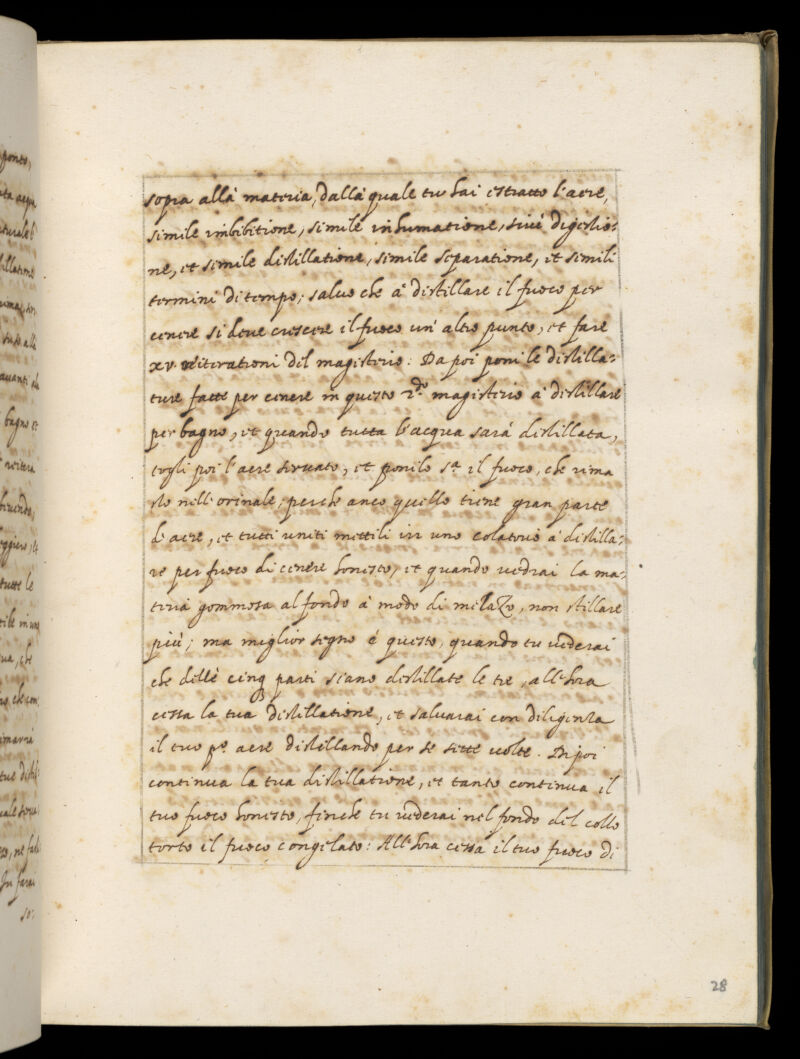 sopra allà materia, dallà quale tu hai estratto l'aere,
simile imbibitione, simile inhumatione, sivè digestio:
ne, et simile distillatione, simile separatione, et simili
termini di tempo; salvo che à distillare il fuoco per
cenere si deve crescere il fuoco un' altro punto, et fare
xv. reiterationi del magisterio: Da poi poni le distilla:
ture fatte per cenere in questo 2do. magisterio à distillare
per bagno, et quando tutta l'acqua sarà distillata,
togli poi l'aere servato, et ponilo sa. il fuoco, che rima
sto nell' orinale; perche anco quello tiene gran parte
d'aere, et tutti uniti mettili in uno colatorio à distilla:
re per fuoco di cenere honesto, et quando vedrai la ma:
teria gommosa al fondo à modo di melazo, non stillare
più; ma miglior segno é questo, quando tu vederai
che dellè cinq3 parti siano distillate le tre, all'hora
cessa la tua distillatione, et salvarai con diligenza
il tuo po. aere distillando per se sette volte. Di poi
continua la tua distillatione, et tanto continua il
tuo fuoco honesto, finche tu vederai nel fondo del collo
torto il fuoco congelato: All'hora cessa il tuo fuoco di
28